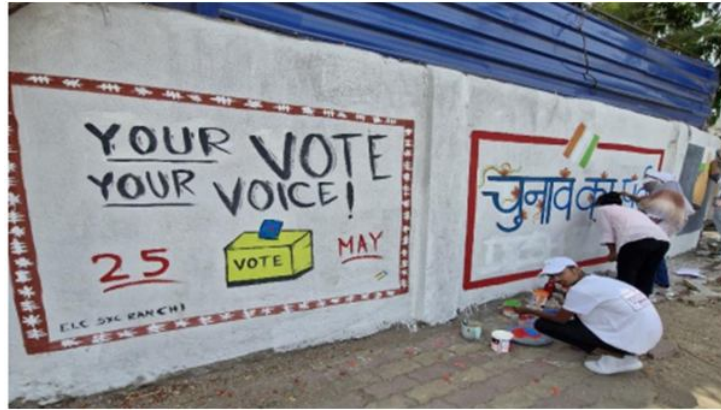 YOUR VOTE
YOUR VOICE!
25 MAY
VOTE
ELC SXC RANCHI
चुनाव का